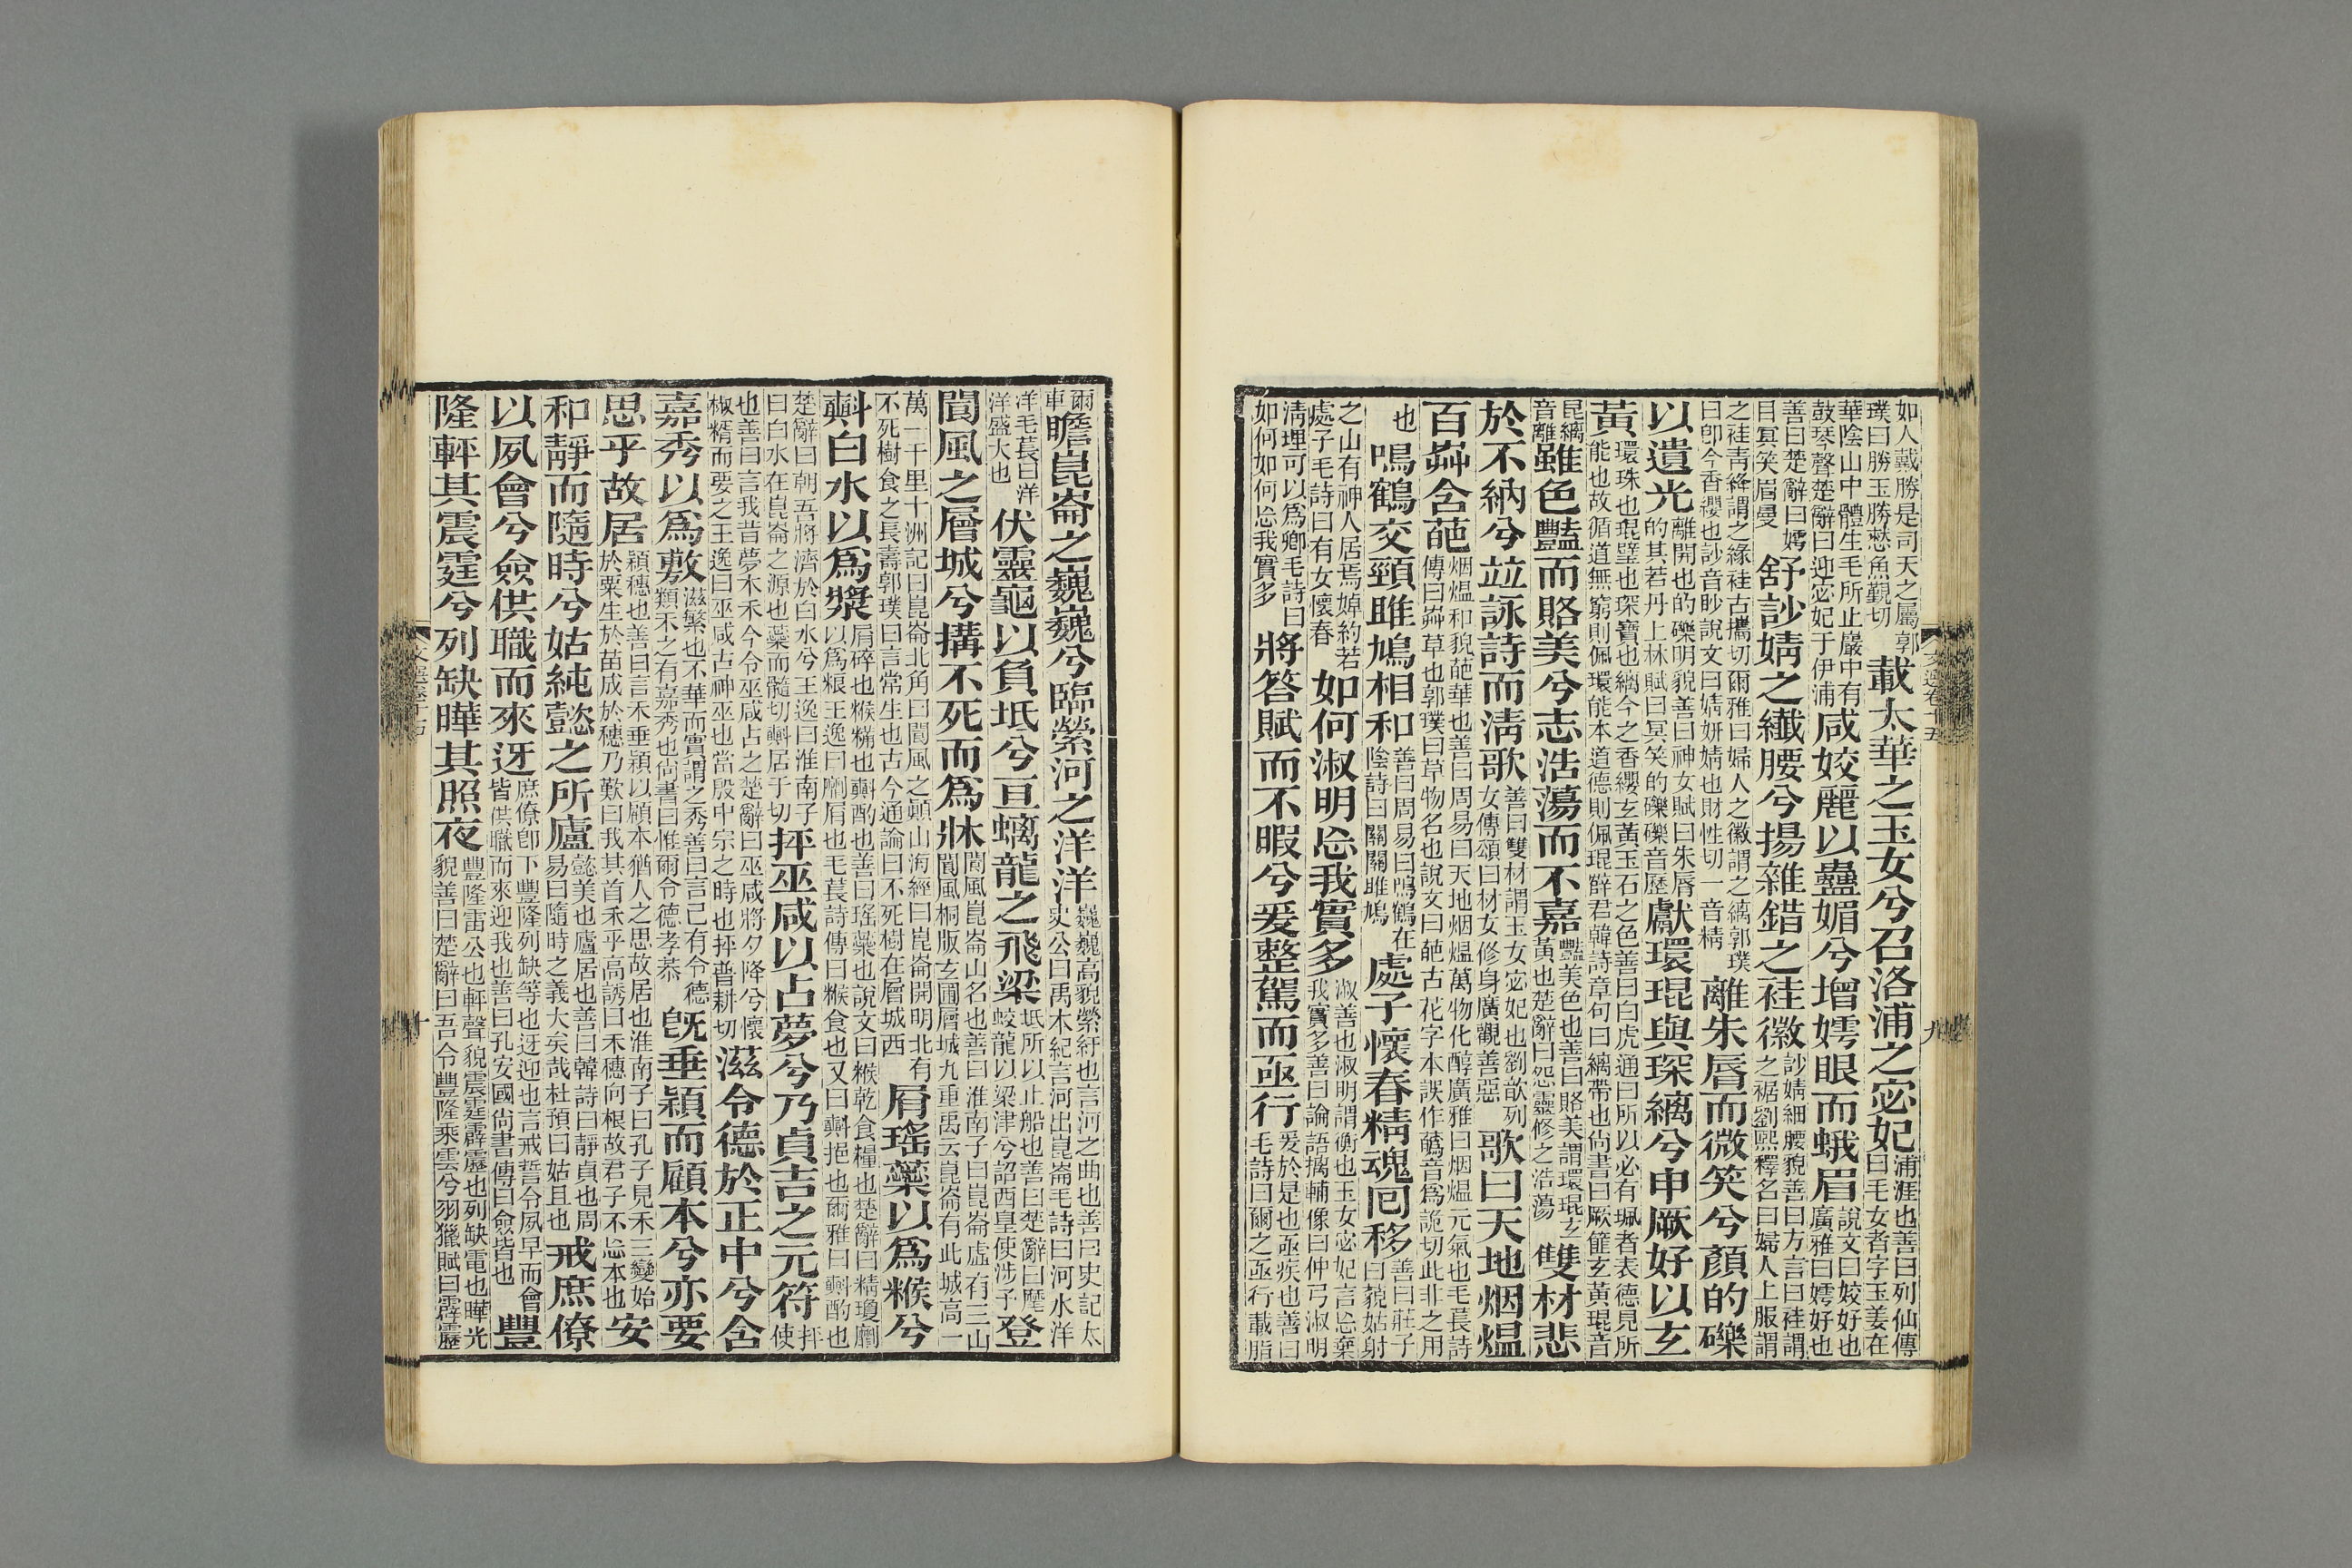 如人戴勝是司天之屬郭璞曰勝玉勝憖魚覲切載太華之玉女兮召洛浦之宓妃浦涯也善曰列仙傳曰毛女者字玉姜在
華陰山中體生毛所止巖中有鼓琴聲楚辭曰迎宓妃于伊浦咸姣麗以蠱媚兮增嫮眼而蛾眉說文曰姣好也廣雅曰嫮好也
善曰楚辭曰嫮目冥笑眉曼舒訬婧之纖腰兮揚雜錯之袿徽訬婧細腰貌善曰方言曰袿謂之裾劉熙釋名曰婦人上服謂
之袿青絳謂之緣袿古攜切爾雅曰婦人之徽謂之縭郭璞曰卽今香纓也訬音眇說文曰婧妍婧也財性切一音精離朱脣而微笑兮顏的礫
以遺光離開也的礫明貌善曰神女賦曰朱脣的其若丹上林賦曰冥笑的礫礫音歷獻環琨與琛縭兮申厥好以玄
黃環珠也琨璧也琛寶也縭今之香纓玄黃玉石之色善曰白虎通曰所以必有珮者表德見所能也故循道無窮則佩環能本道德則佩琨薛君韓詩章句曰縭帶也尚書曰厥篚玄黃琨音
昆縭音離雖色豔而賂美兮志浩蕩而不嘉豔美色也善曰賂美謂環琨玄黃也楚辭曰怨靈修之浩蕩雙材悲
於不納兮並詠詩而淸歌善曰雙材謂玉女宓妃也劉歆列女傳頌曰材女修身廣觀善惡歌曰天地烟熅
百芔含葩烟熅和貌葩華也善曰周易曰天地烟熅萬物化醇廣雅曰烟熅元氣也毛萇詩傳曰芔草也郭璞曰草物名也說文曰葩古花字本誤作蘤音爲詭切此非之用
也鳴鶴交頸雎鳩相和善曰周易曰鳴鶴在陰詩曰關關雎鳩處子懷春精魂回移善曰莊子曰藐姑射
之山有神人居焉婥約若處子毛詩曰有女懷春如何淑明忘我實多淑善也淑明謂衡也玉女宓妃言忘棄我實多善曰論語摘輔像曰仲弓淑明
淸理可以爲卿毛詩曰如何如何忘我實多將答賦而不暇兮爰整駕而亟行爰於是也亟疾也善曰毛詩曰爾之亟行載脂
文選卷十五
九
爾車瞻崑崙之巍巍兮臨縈河之洋洋巍巍高貌縈紆也言河之曲也善曰史記太史公曰禹本紀言河出崑崙毛詩曰河水洋
洋毛萇曰洋洋盛大也伏靈龜以負坻兮亘螭龍之飛梁坻所以止船也善曰楚辭曰麾蛟龍以梁津兮詔西皇使涉予登
閬風之層城兮搆不死而爲牀閬風崑崙山名也善曰淮南子曰崑崙虛有三山閬風桐版玄圃層城九重禹云崑崙有此城高一
萬一千里十洲記曰崑崙北角曰閬風之顚山海經曰崑崙開明北有不死樹食之長壽郭璞曰言常生也古今通論曰不死樹在層城西屑瑤蘂以爲糇兮
㪺白水以爲漿屑碎也糇糒也㪺酌也善曰瑤蘂也說文曰糇乾食糧也楚辭曰精瓊爢以爲粻王逸曰爢屑也毛萇詩傳曰糇食也又曰㪺挹也爾雅曰㪺酌也
楚辭曰朝吾將濟於白水兮王逸曰淮南子曰白水在崑崙之源也蘂而髓切㪺居于切抨巫咸以占夢兮乃貞吉之元符抨使
也善曰言我昔夢木禾今令巫咸占之楚辭曰巫咸將夕降兮懷椒糈而要之王逸曰巫咸古神巫也當殷中宗之時也抨普耕切滋令德於正中兮含
嘉秀以爲敷滋繁也不華而實謂之秀善曰言己有令德類禾之有嘉秀也尚書曰惟爾令德孝恭旣垂穎而顧本兮亦要
思乎故居穎穗也善曰言禾垂穎以顧本猶人之思故居也淮南子曰孔子見禾三變始於粟生於苗成於穗乃歎曰我其首禾乎高誘曰禾穗向根故君子不忘本也安
和靜而隨時兮姑純懿之所廬懿美也廬居也善曰韓詩曰靜貞也周易曰隨時之義大矣哉杜預曰姑且也戒庶僚
以夙會兮僉供職而來迓庶僚卽下豐隆列缺等也迓迎也言戒誓令夙早而會皆供職而來迎我也善曰孔安國尚書傳曰僉皆也豐
隆軯其震霆兮列缺曄其照夜豐隆雷公也軯聲貌震霆霹靂也列缺電也曄光貌善曰楚辭曰吾令豐隆乘雲兮羽獵賦曰霹靂
十